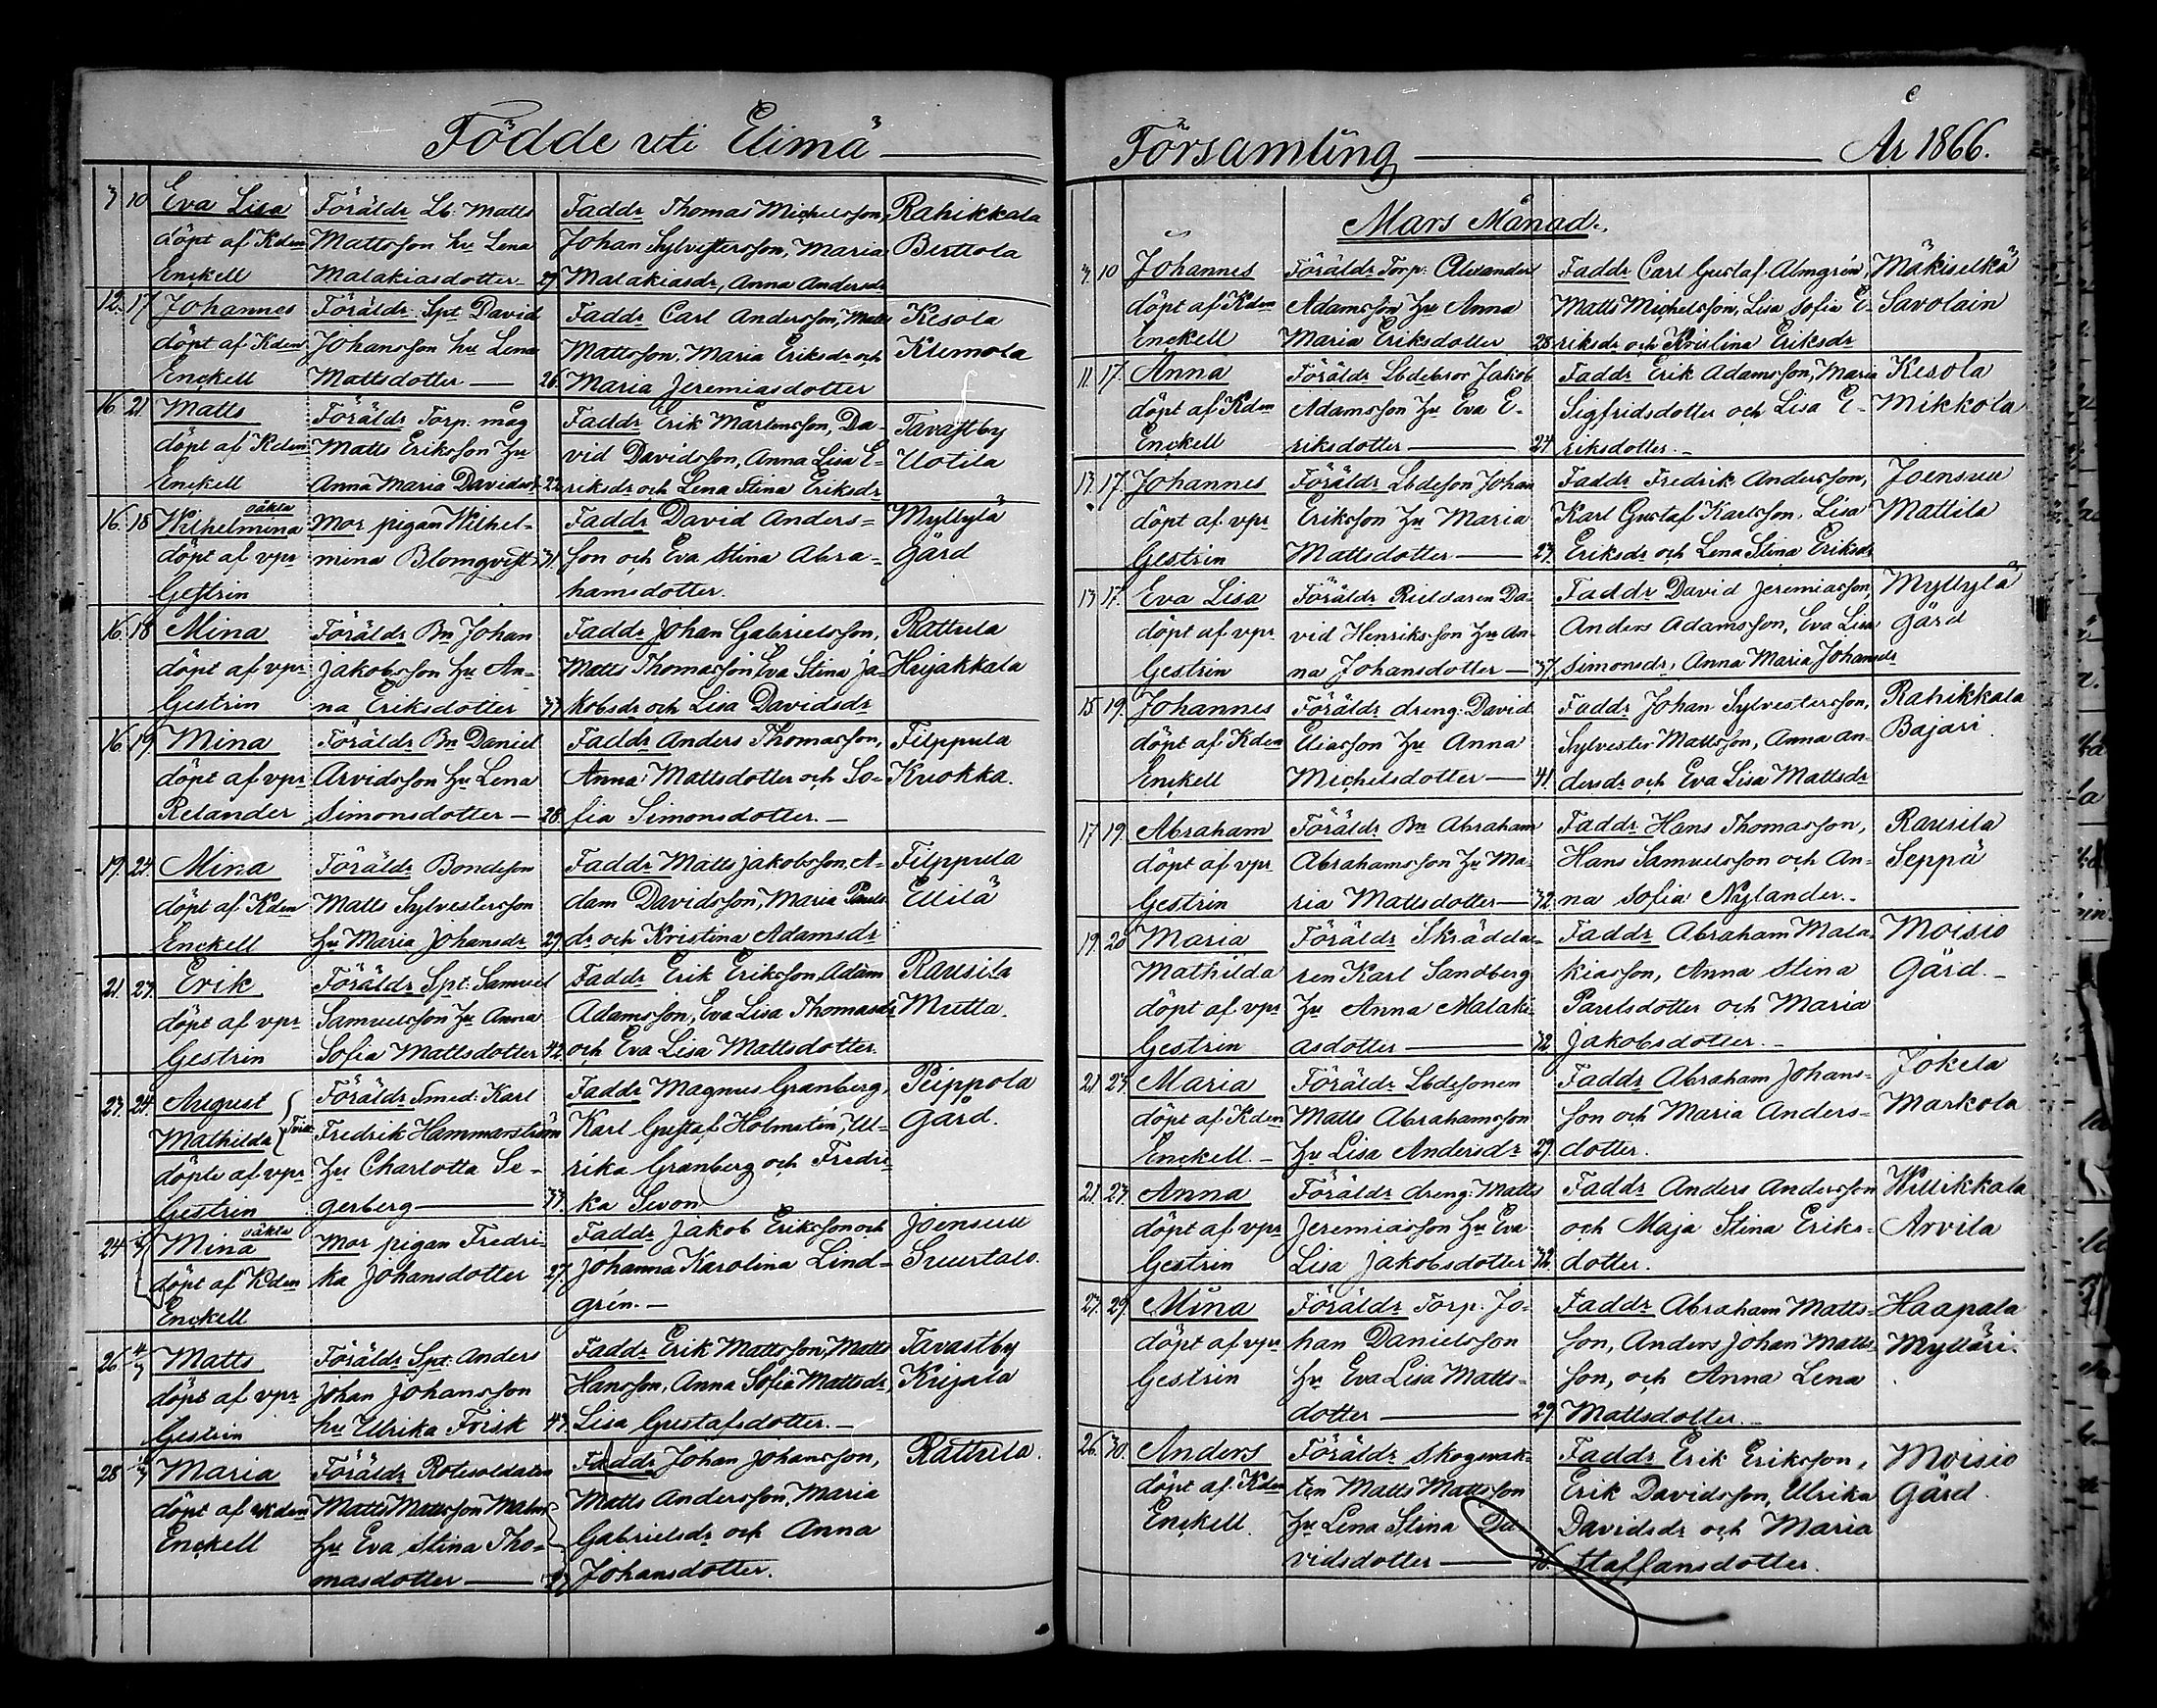 Födde uti Elimä
3 10 Eva Lisa Föräldr Lb. Matts Faddr Thomas Michelsson, Rahikkala
döpt af Kden Mattsson hu Lena Johan Sylvestersson, Maria Berttola
Enckell Malakiasdotter 29 Malakiasdr, Anna Andersdr
12. 17 Johannes Föräldr Spt David Faddr Carl Andersson, Matts Kesola
döpt af Kden Johansson hu Lena Mattsson, Maria Eriksdr och Klemola
Enckell Mattsdotter 26. Maria Jeremiasdotter
16. 21 Matts Föräldr Torp. måg Faddr Erik Mårtensson, Da- Tavastby
döpt af Kden Matts Eriksson hu vid Davidsson, Anna Lisa E= Uotila
Enckell Anna Maria Davidsdr 22 riksdr och Lena Stina Eriksdr
oäkta
16. 18 Wilhelmina Mor pigan Wilhel= Faddr David Anders= Myllylä
döpt af vpr mina Blomqvist 31. son och Eva Stina Abra= Gård
Gestrin hamsdotter.
16. 18 Mina Föräldr Bn Johan Faddr Johan Gabrielsson, Rattula
döpt af vpr Jakobsson hu An= Matts Thomasson Eva Stina Ja= Heijakkala
Gestrin na Eriksdotter 33 kobsdr och Lisa Davidsdr
16 19. Mina Föräldr Bn Daniel Faddr Anders Thomasson, Filppula
döpt af vpr Arvidsson hu Lena Anna Mattsdotter och So= Kuokka.
Relander Simonsdotter 28. fia Simonsdotter.
19. 24. Mina Föräldr Bondeson Faddr Matts Jakobsson, A- Filppula
döpt af Kden Matts Sylvestersson dam Davidsson, Maria Pauls Ellilä
Enckell hu Maria Johansdr 29. dr och Kristina Adamsdr
21. 23. Erik Föräldr Spt Samuel Faddr Erik Eriksson, Adam Rausila
döpt af vpr Samuelsson hu Anna Adamsson, Eva Lisa Thomasdr Mutta.
Gestrin Sofia Mattsdotter 42. och Eva Lisa Mattsdotter.
23. 24. August Föräldr Smed. Karl Faddr Magnus Granberg, Peippola
Mathilda Fredrik Hammarström Karl Gustaf Holmstén, Ul- Gård.
döpte af vpr hu Charlotta Se- rika Granberg och Fredri-
Gestrin gerberg 33. ka Sevon
oäkta
24 Mina Mor pigan Fredri- Faddr Jakob Eriksson och Joensuu
döpt af Kden ka Johansdotter 27. Johanna Karolina Lind= Suurtalo.
Enckell grén.
26 4/3 Matts Föräldr Spt Anders Faddr Erik Mattsson, Matts Tavastby
döpt af vpr Johan Johansson Hansson, Anna Sofia Mattsdr, Krijala
Gestrin hu Ulrika Frisk 43. Lisa Gustafsdotter.
28 Maria Föräldr Rotesoldaten Faddr Johan Johansson, Rattula.
döpt af Kden Matts Mattsson Malm Matts Andersson, Maria
Enckell hu Eva Stina Tho= Gabrielsdr och Anna
masdotter Johansdotter.
Församling År 1866.
Mars Månad.
3. 10 Johannes Föräldr Torp. Alexander Faddr Carl Gustaf Almgrén, Mäkiselkä
döpt af Kden Adamsson hu Anna Matts Michelsson, Lisa Sofia E- Savolain
Enckell Maria Eriksdotter 28 riksdr och Kristina Eriksdr
11. 17. Anna Föräldr Lbdebror Jakob Faddr Erik Adamsson, Maria Kesola
döpt af Kden Adamsson hu Eva E- Sigfridsdotter och Lisa E- Mikkola
Enckell riksdotter 24 riksdotter.
13. 17. Johannes Föräldr Lbdeson Johan Faddr Fredrik Andersson, Joensuu
döpt af vpr Eriksson hu Maria Karl Gustaf Karlsson, Lisa Mattila
Gestrin Mattsdotter 23. Eriksdr och Lena Stina Eriksdr
13 17. Eva Lisa Föräldr Rieldaren Da= Faddr David Jeremiasson, Myllylä
döpt af vpr vid Henriksson hu An- Anders Adamsson, Eva Lisa Gård
Gestrin na Johansdotter 37. Simonsdr, Anna Maria Johansdr
15 19. Johannes Föräldr dreng. David Faddr Johan Sylvestersson, Rahikkala
döpt af Kden Eliasson hu Anna Sylvester Mattsson, Anna An- Bajari
Enckell Michelsdotter 41. dersdr och Eva Lisa Mattsdr
17 19. Abraham Föräldr Bn Abraham Faddr Hans Thomasson, Rausila
döpt af vpr Abrahamsson hu Ma- Hans Samuelsson och An- Seppä
Gestrin ria Mattsdotter 32. na Sofia Nylander.
19. 20 Maria Föräldr Skrädda- Faddr Abraham Mala- Moisio
Mathilda ren Karl Sandberg kiasson, Anna Stina Gård.
döpt af vpr hu Anna Malaki- Paulsdotter och Maria
Gestrin asdotter 32 Jakobsdotter.
21 23. Maria Föräldr Lbdesonen Faddr Abraham Johans- Jokela
döpt af Kden Matts Abrahamsson son och Maria Anders- Markola
Enckell. hu Lisa Andersdr 29. dotter.
21. 23. Anna Föräldr dreng. Matts Faddr Anders Andersson Willikkala
döpt af vpr Jeremiasson hu Eva och Maja Stina Eriks- Arvila
Gestrin Lisa Jakobsdotter 32. dotter.
23. 29. Mina Föräldr Torp. Jo- Faddr Abraham Matts- Haapala
döpt af vpr han Danielsson son, Anders Johan Matts- Mylläri.
Gestrin hu Eva Lisa Matts- son, och Anna Lena
dotter 29. Mattsdotter.
26. 30. Anders Föräldr Skogvak- Faddr Erik Eriksson, Moisio
döpt af Kden ten Matts Mattsson Erik Davidsson, Ulrika Gård.
Enckell. hu Lena Stina Da Davidsdr och Maria
vidsdotter 36. Staffansdotter.